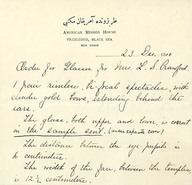 AMERICAN MISSION HOUSE
TREBIZOND, BLACK SEA
23 Dec.
Order for Glasses for Mrs. L. S. Crawford.
1 pair rimless, bi-focal spectacles, with
slender gold bows, extending behind
the ears.
The glass, both upper and lower, is correct
in the sample sent.
The distance between the eye pupils is
centimeters.
The width of the face, between the temples
is 12½ centimeters.